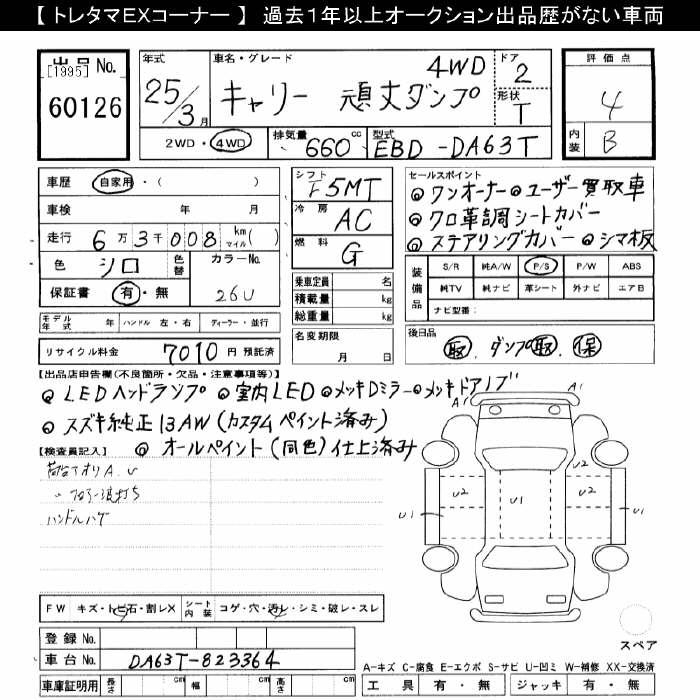 【 トレタマEXコーナー 】 過去1年以上オークション出品歴がない車両
出品 No.
[1995]
60126
年式 車名・グレード ドア 評価点
25/3月 キャリー 頑丈ダンプ 4WD 2
形状 T
4
内装 B
2WD・4WD 排気量 660 cc 型式 EBD-DA63T
車歴 自家用・( )
車検 年 月
走行 6万3千008 km マイル( )
色 シロ 色替 カラーNo. 26U
保証書 有・無
シフト F5MT
冷房 AC
燃料 G
乗車定員 名
積載量 kg
総重量 kg
セールスポイント
◎ワンオーナー◎ユーザー買取車
◎クロ革調シートカバー
◎ステアリングカバー◎シマ板
装備品 S/R 純A/W P/S P/W ABS
純TV 純ナビ 革シート 外ナビ エアB
ナビ型番:
モデル年式 年 ハンドル 左・右 ディーラー・並行
リサイクル料金 7010 円 預託済
名変期限 月 日
後日品
取、ダンプ取、保
【出品店申告欄(不良箇所・欠品・注意事項等)】
◎LEDヘッドランプ ◎室内LED ◎メッキDミラー◎メッキドアノブ
◎スズキ純正13AW(カスタムペイント済み)
◎オールペイント(同色)仕上済み
【検査員記入】
ハンドルハゲ
A1 A1
U2 U2
U1 U1 U1
U2 U2
FW キズ・トビ石・割レX シート内装 コゲ・穴・汚レ・シミ・破レ・スレ
スペア
登録 No.
車台 No. DA63T-823364
A-キズ C-腐食 E-エクボ S-サビ U-凹ミ W-補修 XX-交換済
車庫証明用 長さ cm 幅 cm 高さ cm 工具 有・無 ジャッキ 有・無